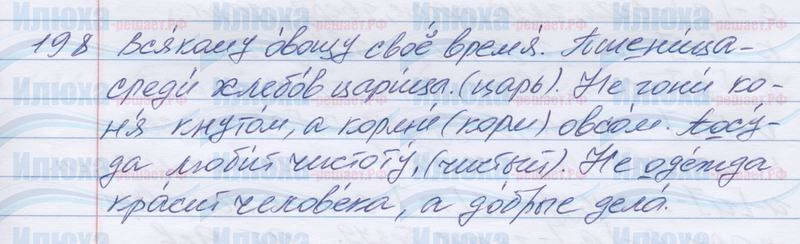 198 Вся́кому о́вощу своё вре́мя. Пшени́ца-
среди́ хлебо́в цари́ца. (царь). Не гони́ ко-
ня́ кнуто́м, а корми́ (корм) овсо́м. Посу́-
да лю́бит чистоту́, (чистый). Не оде́жда
кра́сит челове́ка, а до́брые дела́.